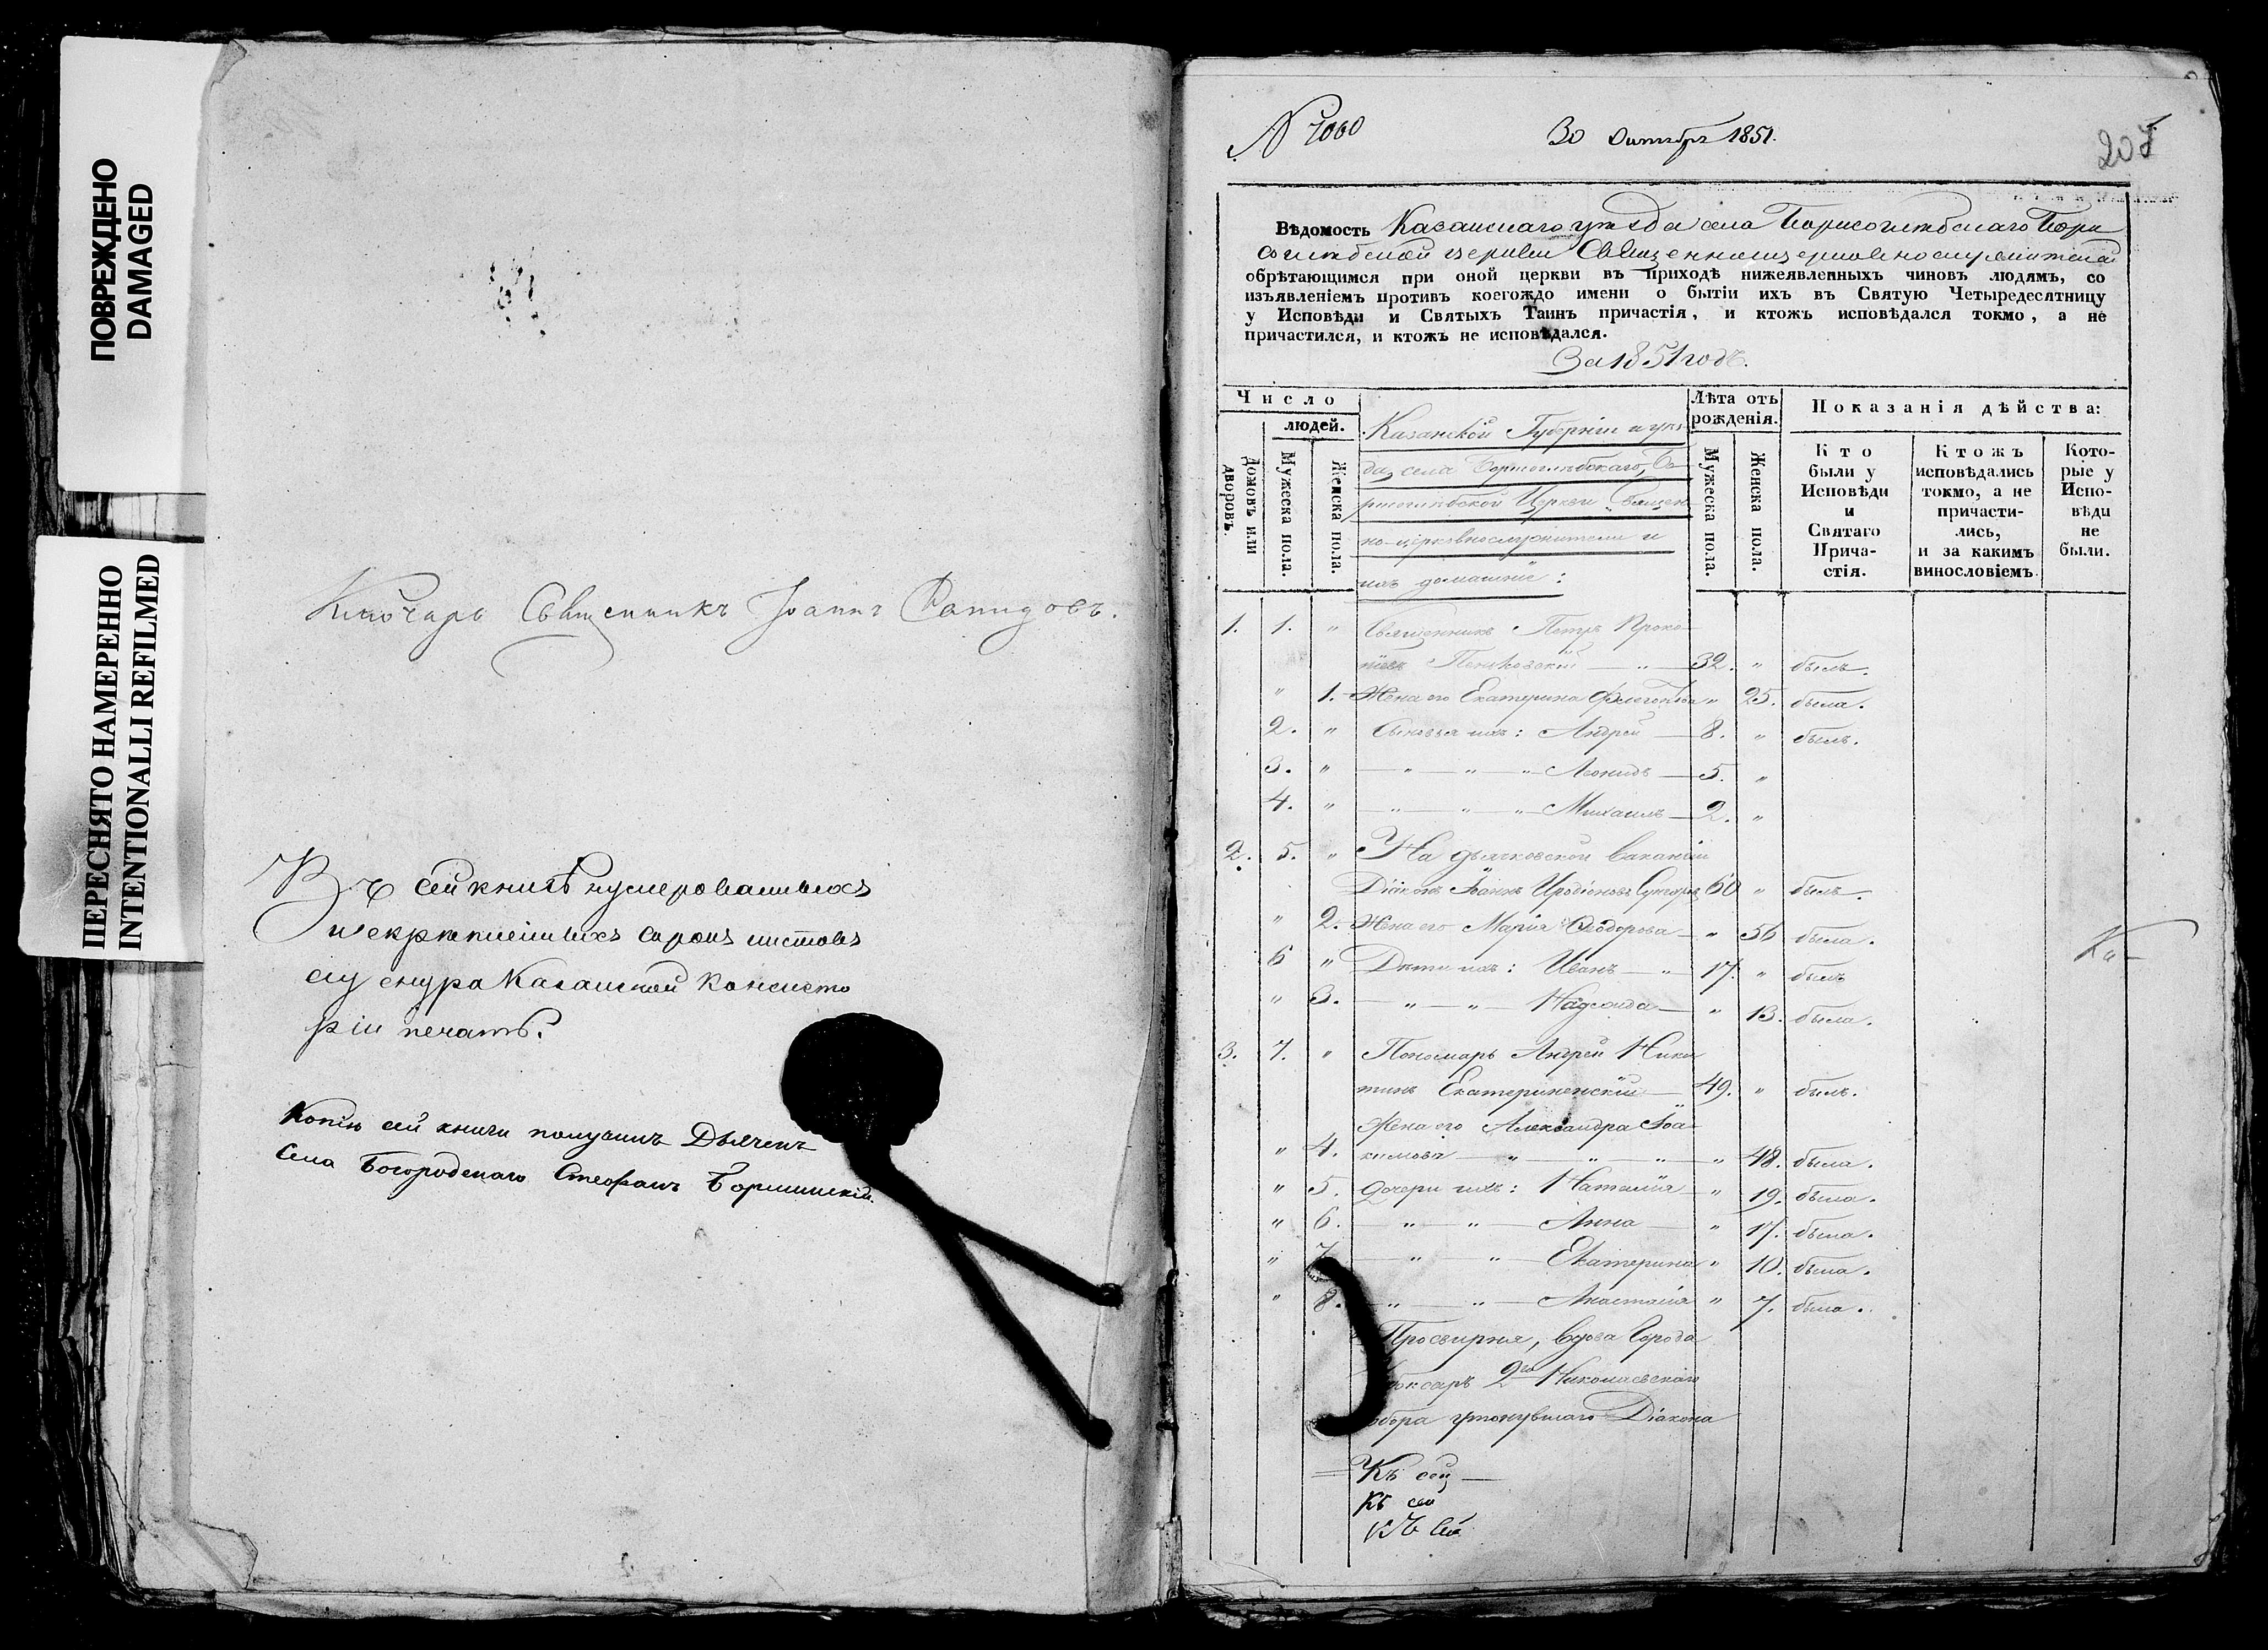 ПОВРЕЖДЕНО
DAMAGED
ПЕРЕСНЯТО НАМЕРЕННО
INTENTIONALLI REFILMED
Ключарь Священникъ Іоаннъ
Въ сей книгѣ нумерованныхъ
и скрѣпленныхъ сорокъ листовъ
Казанской Консисто
ріи печать.
Копію сей книги получилъ Дьячекъ
Села Богородскаго Стефанъ
N 1060
30 Октября 1851.
207
Вѣдомость Казанскаго уѣзда села Борисоглѣбскаго Бори
соглѣбской церкви Священноцерковнослужителей
обрѣтающимся при оной церкви въ приходѣ нижеявленныхъ чиновъ людямъ, со
изъявленіемъ противъ коегождо имени о бытіи ихъ въ Святую Четыредесятницу
у Исповѣди и Святыхъ Таинъ причастія, и ктожъ исповѣдался токмо, а не
причастился, и ктожъ не исповѣдался.
За 1851 годъ.
Число
людей.
Домовъ или дворовъ.
Мужеска пола.
Женска пола.
Казанской Губерніи и уѣз
да, села Борисоглѣбскаго, Бо
рисоглѣбской Церкви Священ
но-церковнослужители и
ихъ домашніе:
Лѣта отъ рожденія.
Мужеска пола.
Женска пола.
Показанія дѣйства:
Кто были у Исповѣди и Святаго Прича-стія.
Ктожъ исповѣдались токмо, а не причасти-лись, и за какимъ винословіемъ.
Кото-рые у Испо-вѣди не были.
1. 1. " Священникъ Петръ Проко
піевъ Пеньковскій — " — 32. " былъ.
" 1. Жена его Екатерина " 25. была.
2. " Сыновья ихъ: Андрей — 8. " былъ.
3. " — " — " — Леонидъ — 5. "
4. " — " — " — Михаилъ — 2. "
2. 5. " На дьячковской ваканціи
Діаконъ Іоаннъ Иродіоновъ 60 " былъ.
" 2. Жена его Марія Ѳеодорова — " 56 была.
6 " Дѣти ихъ: Иванъ — " 17. " былъ
" 3. — " — " — Надежда — " 13. была.
3. 7. " Пономарь Андрей Ники
тинъ Екатерининскій — 49. " былъ.
Жена его Александра Іоа
" 4. кимова — " — " — " — " 48. была.
" 5. Дочери ихъ: Наталія — " 19. была.
" 6. — " — " — Анна — " 17. была.
" 7. — " — " — Екатерина " 10. была.
" 8. — " — " — Анастасія " 7. была.
Просвирня, вдова Города
2го Николаевскаго
утонувшаго Діакона
Къ сей
Къ сей
Къ сей